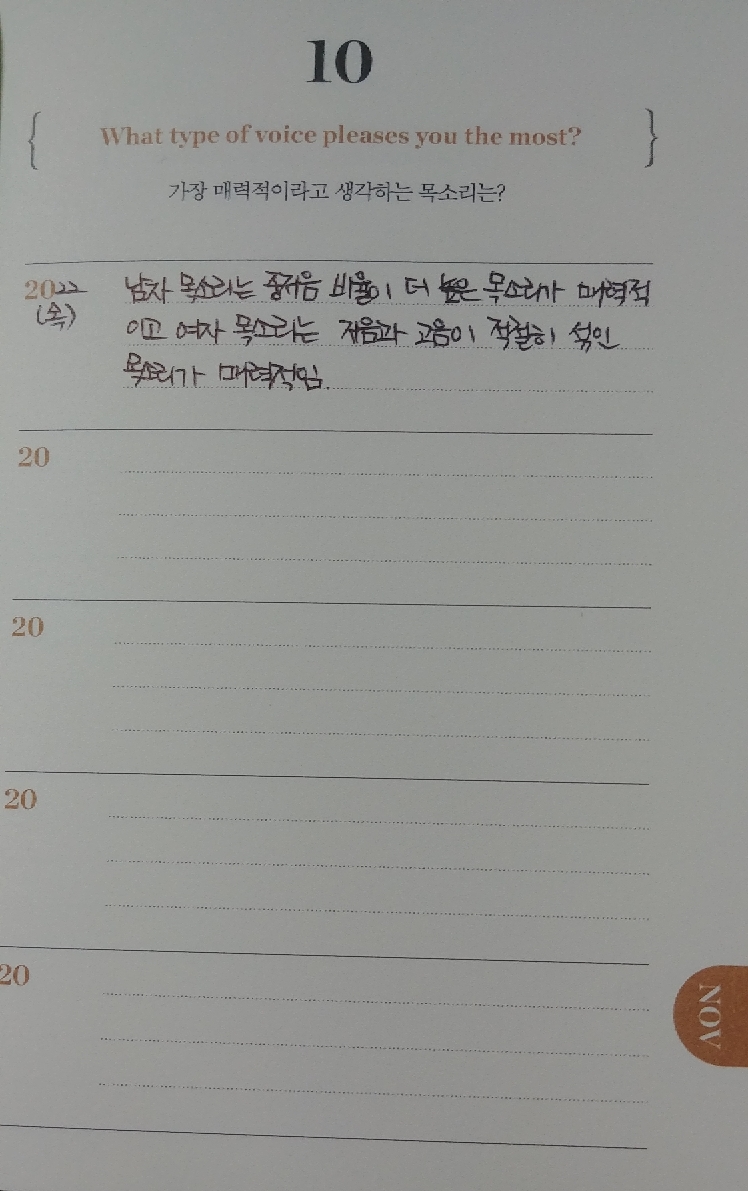 10
{ What type of voice pleases you the most? }
가장 매력적이라고 생각하는 목소리는?
2022 남자 목소리는 중저음 비율이 더 높은 목소리가 매력적
(목) 이고 여자 목소리는 저음과 고음이 적절히 섞인
목소리가 매력적임.
20
20
20
20
NOV